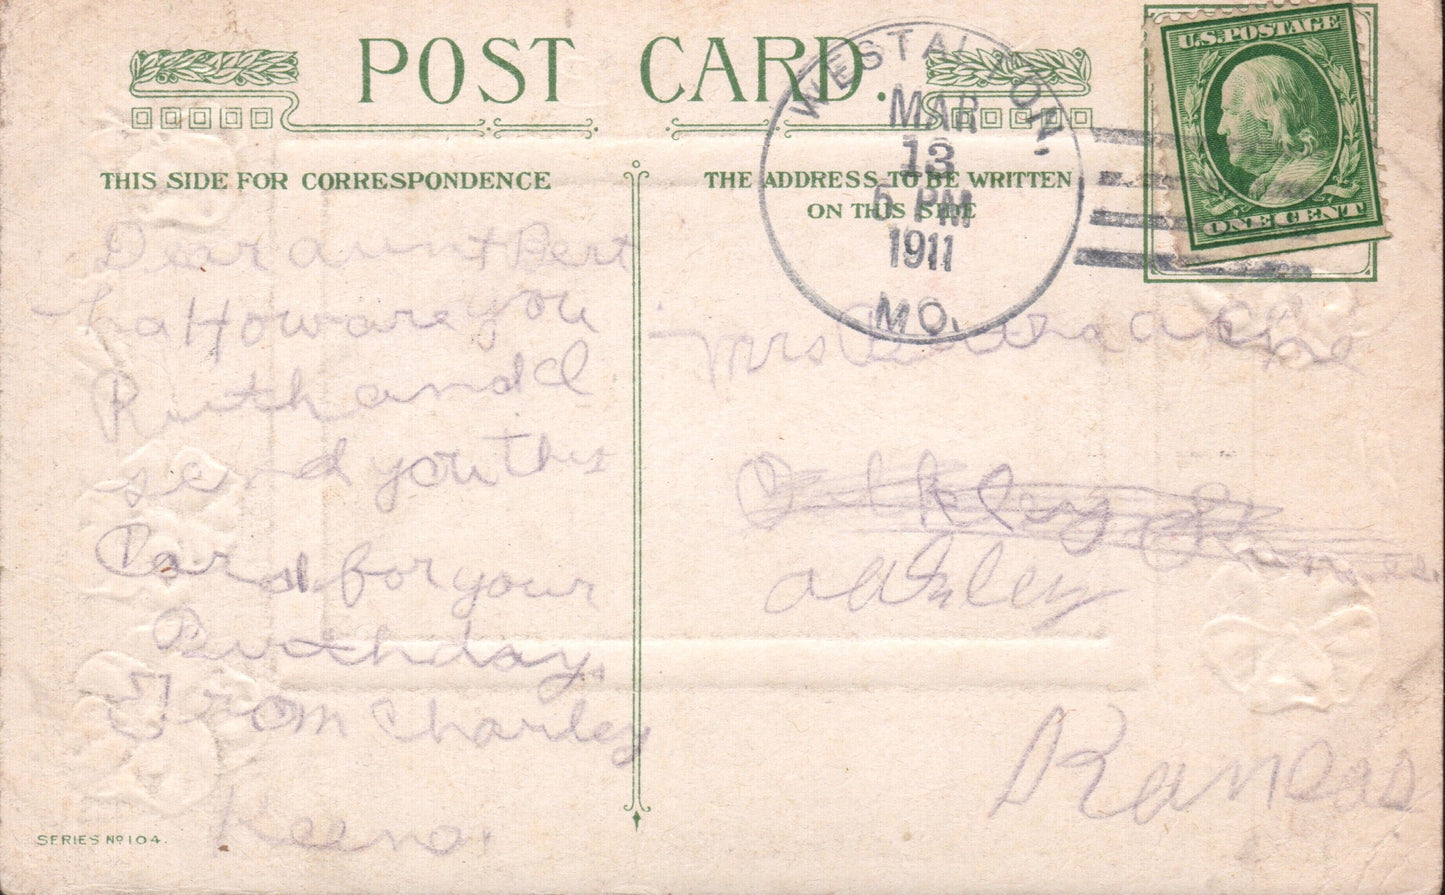 POST CARD.
THIS SIDE FOR CORRESPONDENCE
THE ADDRESS TO BE WRITTEN
ON THIS SIDE
WEST ALTON,
MAR
13
6 PM
1911
MO.
U.S. POSTAGE
ONE CENT
Dear aunt Bert
ha How are you
Ruth and I
send you this
Card for your
Birthday.
From Charley
Keeno.
Mrs Bertha
Oakley
Kansas
SERIES No 104.